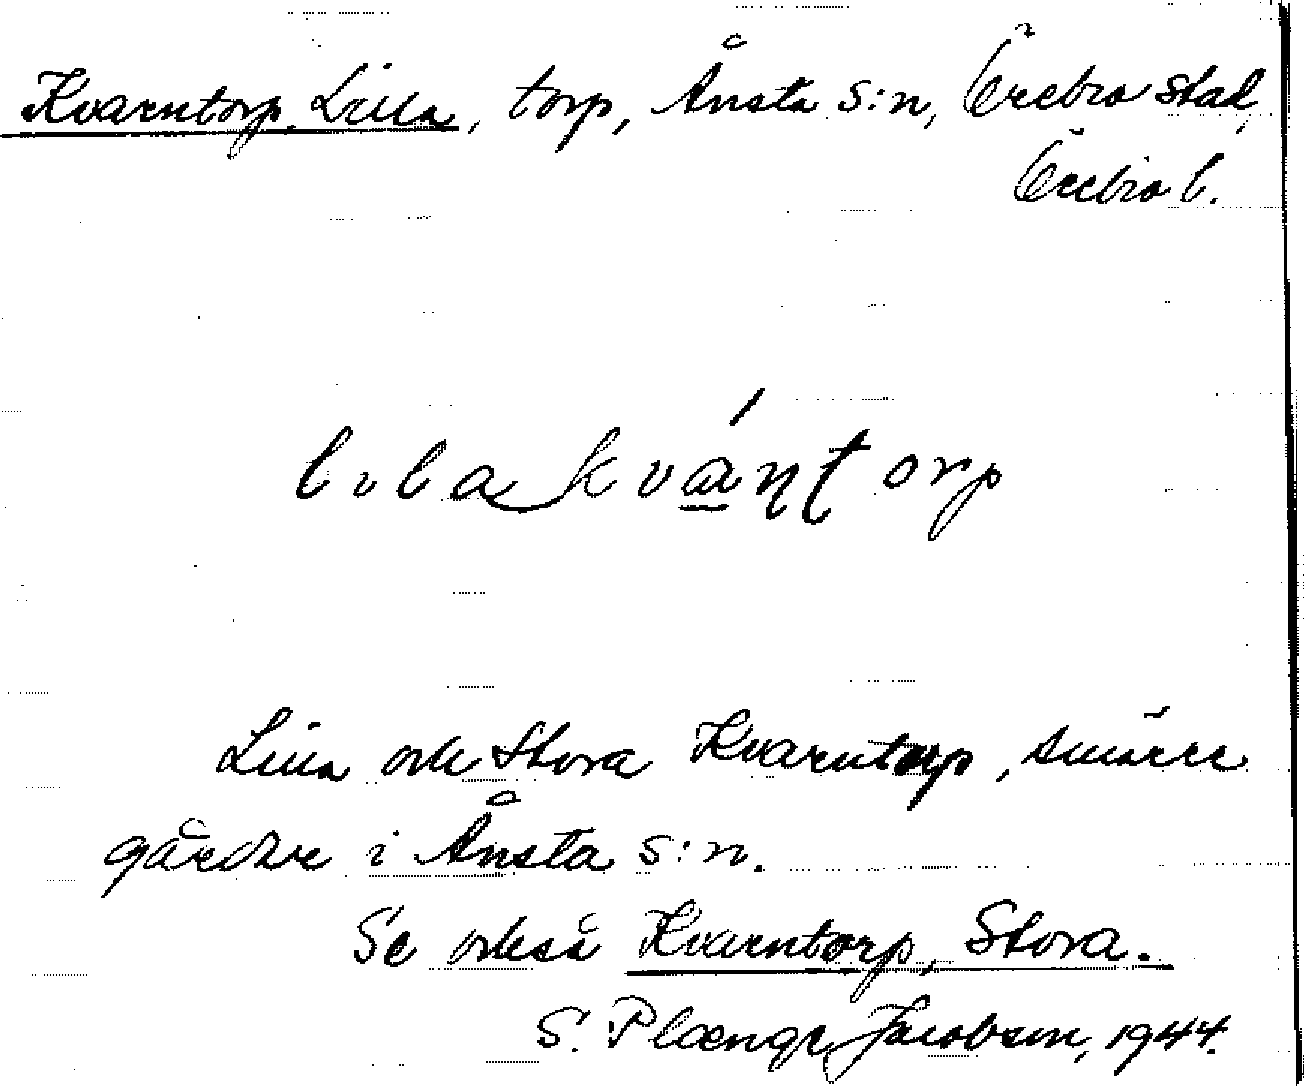 Kvarntorp, Lilla, torp, Ånsta s:n, Örebro stad,
Örebro l.
lɩla kvа́ɳʈorp
Lilla och Stora Kvarntorp, smärre
gårdar i Ånsta s:n.
Se också Kvarntorp, Stora.
S. Plænge Jacobson, 1944.